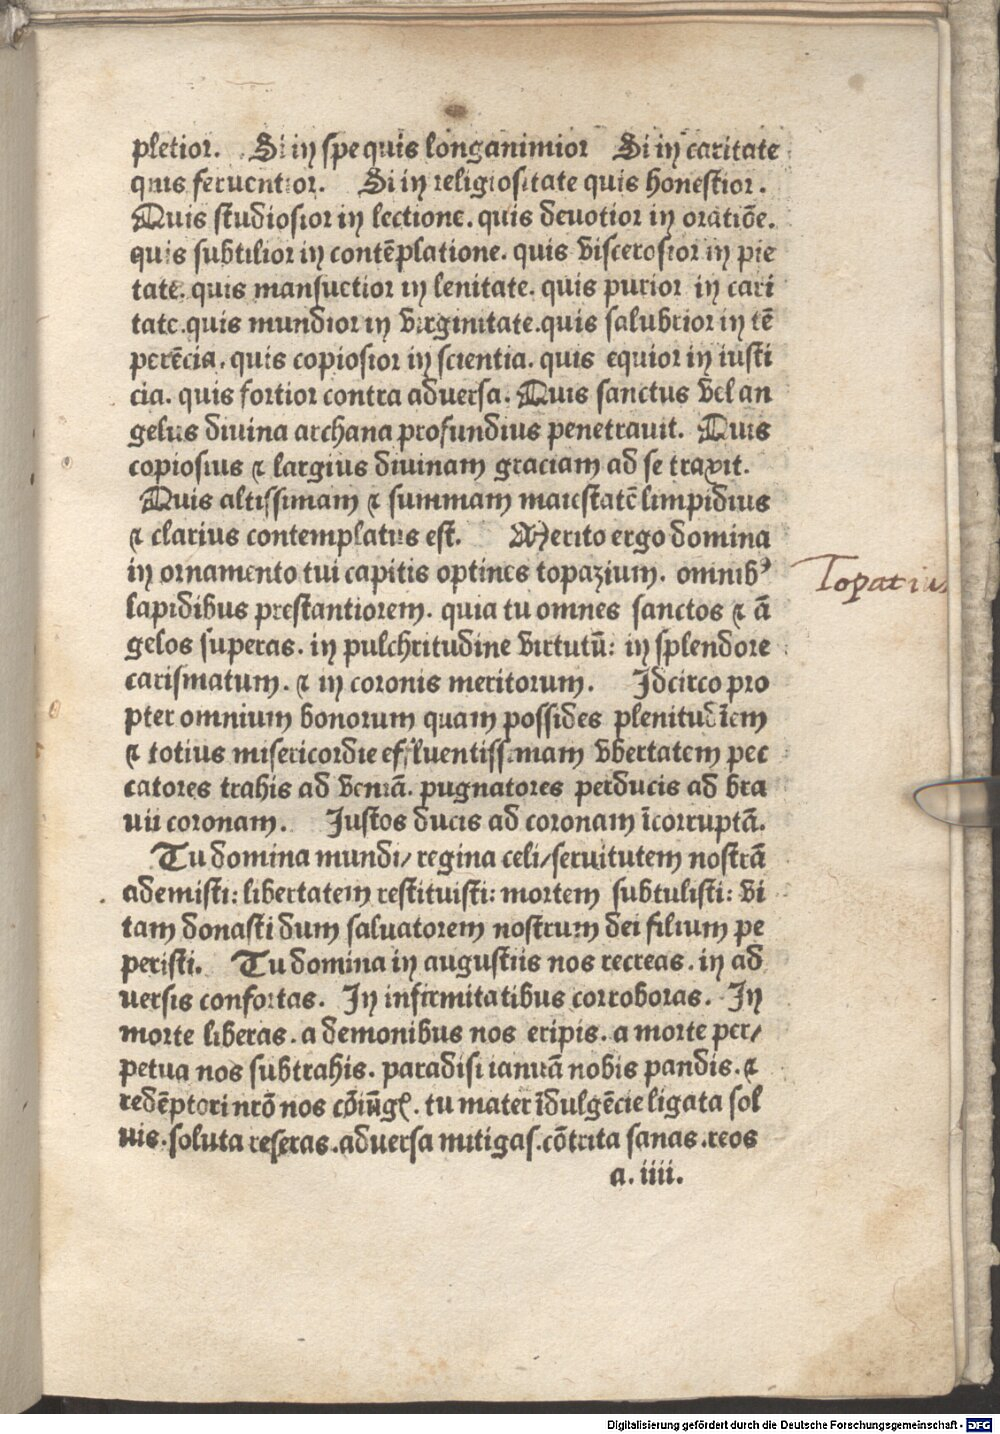 pletior. Si in spe quis longanimior Si in caritate
quis feruentior. Si in religiositate quis honestior.
Quis studiosior in lectione. quis deuotior in oratiōe.
quis subtilior in contēplatione. quis viscerosior in pie
tate. quis mansuetior in lenitate. quis purior in cari
tate. quis mundior in virginitate. quis salubrior in tē
perēcia. quis copiosior in scientia. quis equior in iusti
cia. quis fortior contra aduersa. Quis sanctus vel an
gelus diuina archana profundius penetrauit. Quis
copiosius ⁊ largius diuinam graciam ad se traxit.
Quis altissimam ⁊ summam maiestatē limpidius
⁊ clarius contemplatus est. Merito ergo domina
in ornamento tui capitis optines topazium. omnibꝰ
Topatius
lapidibus prestantiorem. quia tu omnes sanctos ⁊ ā
gelos superas. in pulchritudine virtutū: in splendore
carismatum. ⁊ in coronis meritorum. Idcirco pro
pter omnium bonorum quam possides plenitudīem
⁊ totius misericordie effluentissimam vbertatem pec
catores trahis ad veniā. pugnatores perducis ad bra
uii coronam. Iustos ducis ad coronam īcorruptā.
Tu domina mundi/ regina celi/ seruitutem nostrā
ademisti: libertatem restituisti: mortem subtulisti: vi
tam donasti dum saluatorem nostrum dei filium pe
peristi. Tu domina in augustiis nos recreas. in ad
uersis confortas. In infirmitatibus corroboras. In
morte liberas. a demonibus nos eripis. a morte per/
petua nos subtrahis. paradisi ianuā nobis pandis. ⁊
redēptori nrō nos cōiūgꝭ. tu mater īdulgēcie ligata sol
uis. soluta reseras. aduersa mitigas. cōtrita sanas. reos
a. iiii.
Digitalisierung gefördert durch die Deutsche Forschungsgemeinschaft - DFG